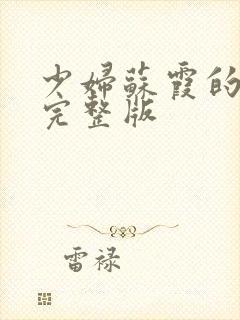 少婦蘇霞的
完整版
雷禄